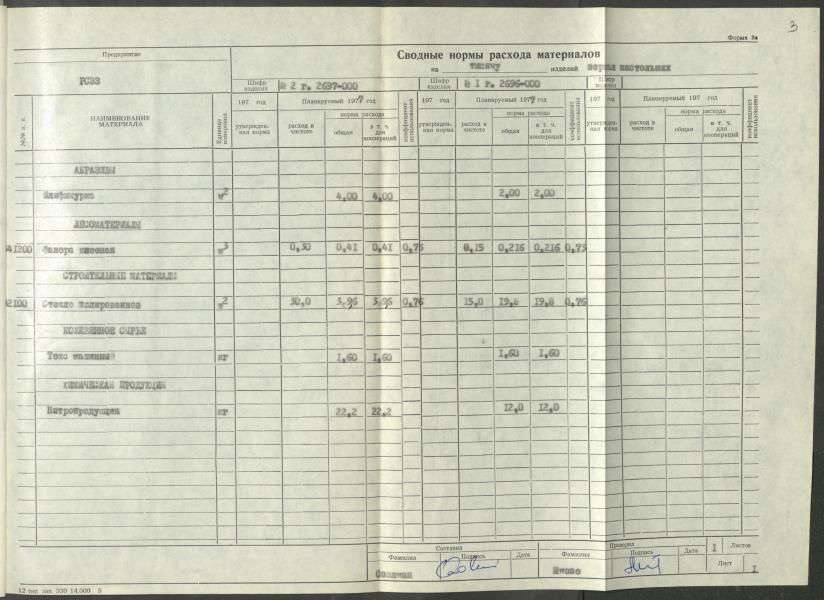 3
Форма 2а
Предприятие
Сводные нормы расхода материалов
РСЭЗ
на тысячу изделий зеркал настольных
Шифр изделия № 2 г. 2697-000 Шифр изделия № I г. 2696-000 Шифр изделия
№№ п. п. НАИМЕНОВАНИЕ МАТЕРИАЛА Единица измерения
197 год Планируемый 1977 год коэффициент использования 197 год Планируемый 1977 год коэффициент использования 197 год Планируемый 197 год коэффициент использования
утвержден-ная норма расход в чистоте норма расхода общая в т. ч. для кооперации
утвержден-ная норма расход в чистоте норма расхода общая в т. ч. для кооперации
утвержден-ная норма расход в чистоте норма расхода общая в т. ч. для кооперации
АБРАЗИВЫ
Шлифшкурка м2 4,00 4,00 2,00 2,00
ЛЕСОМАТЕРИАЛЫ
Фанера клееная м3 0,30 0,41 0,41 0,73 0,15 0,216 0,216 0,73
СТРОИТЕЛЬНЫЕ МАТЕРИАЛЫ
Стекло полированное м2 30,0 3,96 3,96 0,76 15,0 19,8 19,8 0,76
КОЖЕВЕННОЕ СЫРЬЕ
Текс машинный кг 1,60 1,60 1,60 1,60
ХИМИЧЕСКАЯ ПРОДУКЦИЯ
Нитропродукция кг 22,2 22,2 12,0 12,0
Составил Проверил I Листов
Фамилия Подпись Дата Фамилия Подпись Дата Лист I
12 тип. зак. 330 14.000 5